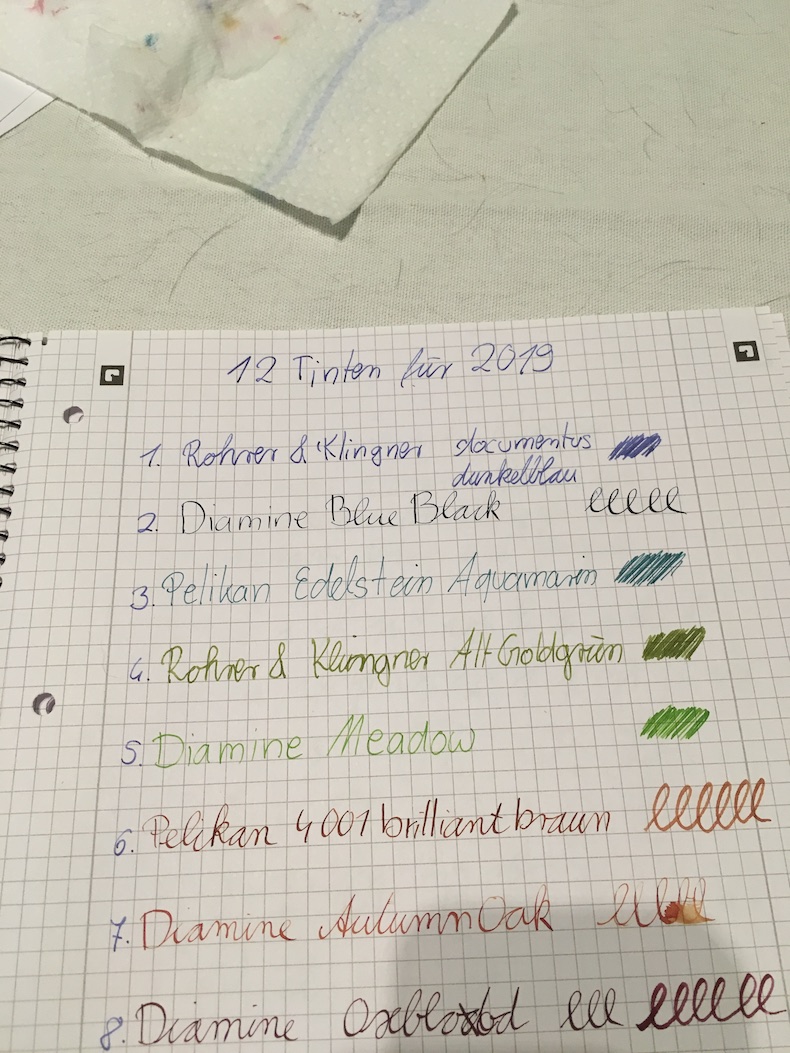 12 Tinten für 2019
1. Rohrer & Klingner documentus
dunkelblau
2. Diamine Blue Black
3. Pelikan Edelstein Aquamarin
4. Rohrer & Klingner Alt Goldgrün
5. Diamine Meadow
6. Pelikan 4001 brilliantbraun
7. Diamine Autumn Oak
8. Diamine Oxeblood